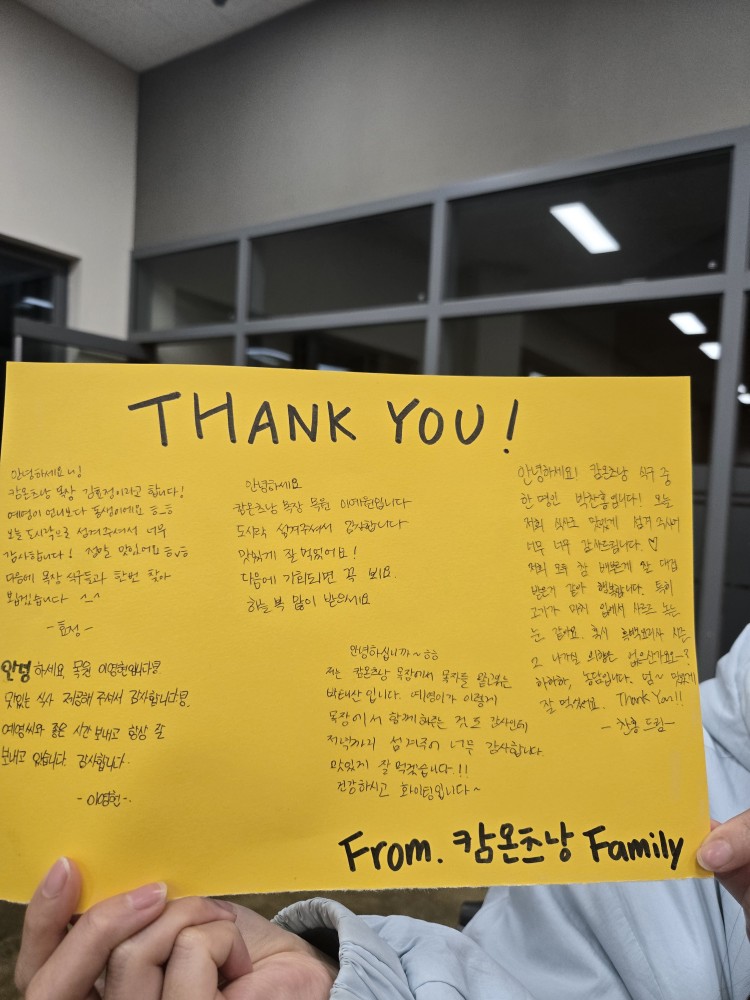 THANK YOU!
안녕하세요 ㅂ님
캄온츠낭 목장 김효정이라고 합니다!
예영이 언니보다 동생이에요 ㅎ_ㅎ
오늘 도시락으로 섬겨주셔서 너무
감사합니다! 정말 맛있어요 ㅎvㅎ
다음에 목장 식구들과 한번 찾아
뵙겠습니다 ^_^
- 효정 -
안녕하세요. 목원 이영헌입니다.
맛있는 식사 제공해 주셔서 감사합니다.
예영씨와 좋은 시간 보내고 항상 잘
보내고 있습니다. 감사합니다.
- 이영헌 -
안녕하세요
캄온츠낭 목장 목원 이예원입니다
도시락 섬겨주셔서 감사합니다
맛있게 잘 먹었어요!
다음에 기회되면 꼭 뵈요.
하늘 복 많이 받으세요
안녕하십니까~ㅎㅎ
저는 캄온츠낭 목장에서 목자를 맡고있는
박태산입니다. 예영이가 이렇게
목장에서 함께해주는 것도 감사한데
저녁까지 섬겨주어 너무 감사합니다.
맛있게 잘 먹겠습니다.!!
건강하시고 화이팅입니다~
안녕하세요! 캄온츠낭 식구 중
한 명인 박찬흥입니다! 오늘
저희 식사로 맛있게 섬겨 주셔서
너무 너무 감사드립니다. ♡
저희 모두 참 예쁘게 한 대접
받은거 같아 행복합니다. 특히
고기가 마치 입에서 사르르 녹는
눈 같아요. 혹시 흑백요리사 시즌
2 나가실 의향은 없으신가요~?
하하하, 농담입니다. 넘~ 맛있게
잘 먹었어요. Thank You!!
- 찬흥 드림 -
From. 캄온츠낭 Family